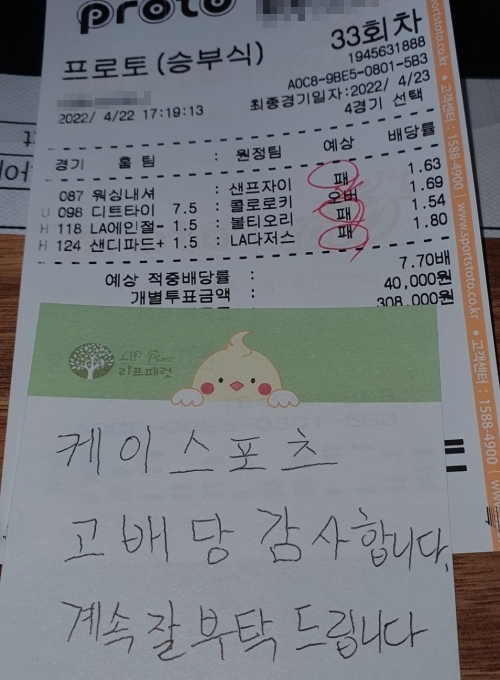 proto
33회차
프로토(승부식)
1945631888
A0C8-9BE5-0801-5B3
2022/ 4/22 17:19:13
최종경기일자:2022/ 4/23
4경기 선택
경기 홈 팀 : 원정팀 예상 배당률
087 워싱내셔 : 샌프자이 패 1.63
U 098 디트타이 7.5 : 콜로로키 오버 1.69
H 118 LA에인절- 1.5 : 볼티오리 패 1.54
H 124 샌디파드+ 1.5 : LA다저스 패 1.80
예상 적중배당률 : 7.70배
개별투표금액 : 40,000원
308,000원
리프패럿
케이스포츠
고배당 감사합니다.
계속 잘 부탁드립니다
www.sportstoto.co.kr • 고객센터 : 1588-4900